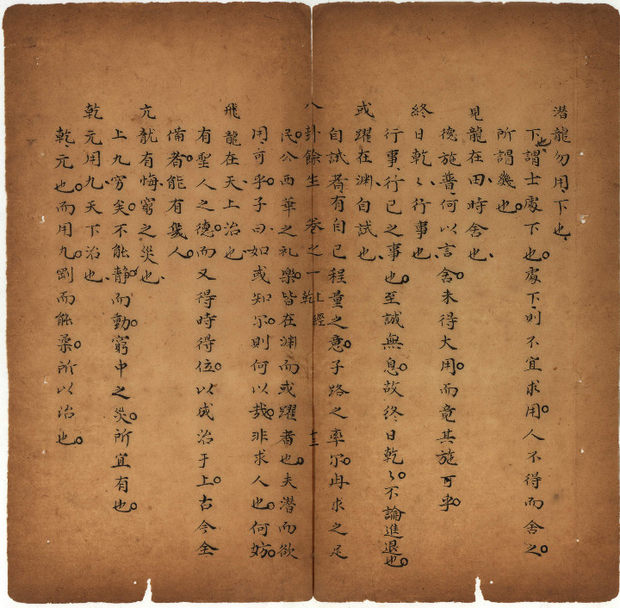 潛龍勿用、下也、
下也謂士處下也。處下、則不宜求用。人不得而舍之。
所謂幾也。
見龍在田、時舍也、
德施普、何以言舍。未得大用。而竟其施可乎。
終日乾〻、行事也、
行事、行己之事也。至誠無息。故終日乾〻。不論進退也。
或躍在淵、自試也、
自試者。有自己程量之意。子路之率尔。冉求之足
八卦餘生 卷之一 上經 乾 十三
民。公西華之礼樂。皆在淵而或躍者也。夫潛而欲
用、可乎。子曰、如或知尔。則何以哉。非求人也。何妨。
飛龍在天、上治也、
有聖人之德。而又得時得位。以成治于上。古今全
備者。能有幾人。
亢龍有悔、窮之災也、
上九窮矣。不能靜而動。窮中之災。所宜有也。
乾元用九、天下治也、
乾元也。而用九。剛而能柔。所以治也。